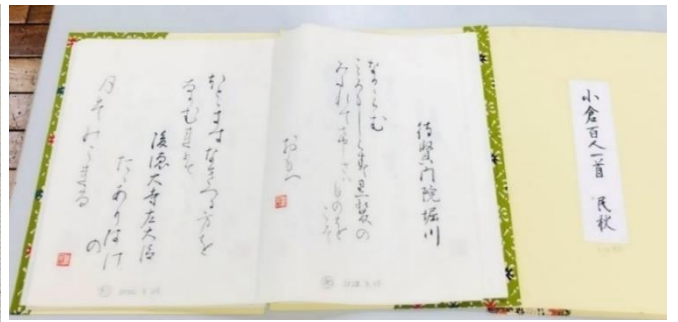 小倉百人一首 民秋
待賢門院堀川
なかゝらむ
こゝろもしらす黒髪の
みたれて希さはものを
こそ
おもへ
ほとゝきすなきつる方を
なかむれは
後徳大寺左大臣
たゝありあけ
の
月そのこれる